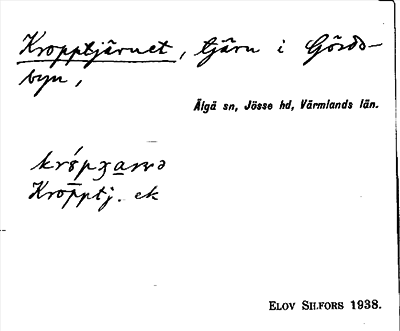 Kropptjärnet, tjärn i Gördsbyn,
Älgå sn, Jösse hd, Värmlands län.
Kropptj. ek
ELOV SILFORS 1938.